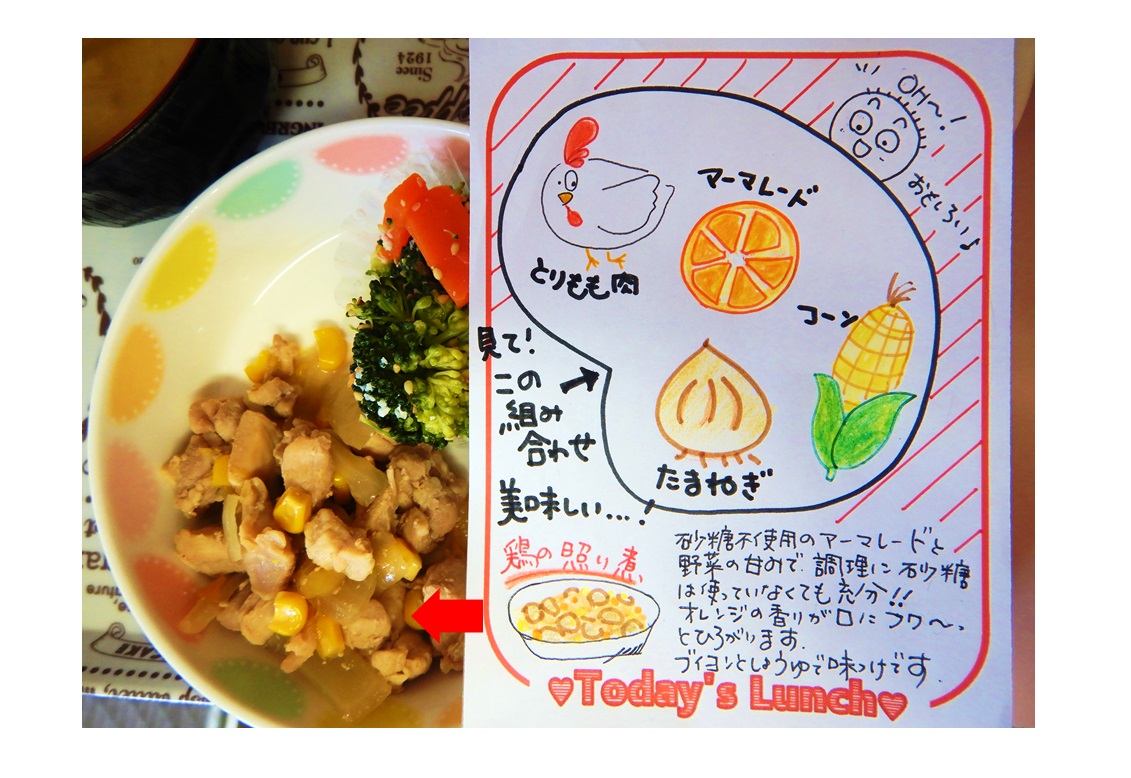 Since
1924
OH〜!
おもしろい♪
マーマレード
とりもも肉
コーン
たまねぎ
見て!
この
組み
合わせ
美味しい...!
鶏の照り煮
砂糖不使用のマーマレードと
野菜の甘みで、調理に砂糖
は使っていなくても充分!!
オレンジの香りが口にフワ〜っ
とひろがります。
ブイヨンとしょうゆで味つけです。
♥Today's Lunch♥